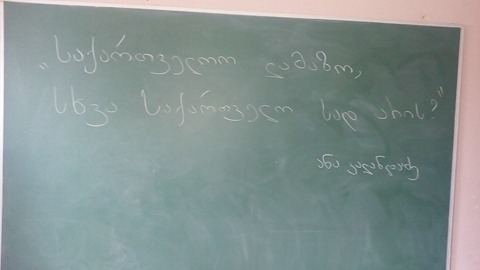 „საქართველოო ლამაზო,
სხვა საქართველო სად არის?"
ანა კალანდაძე